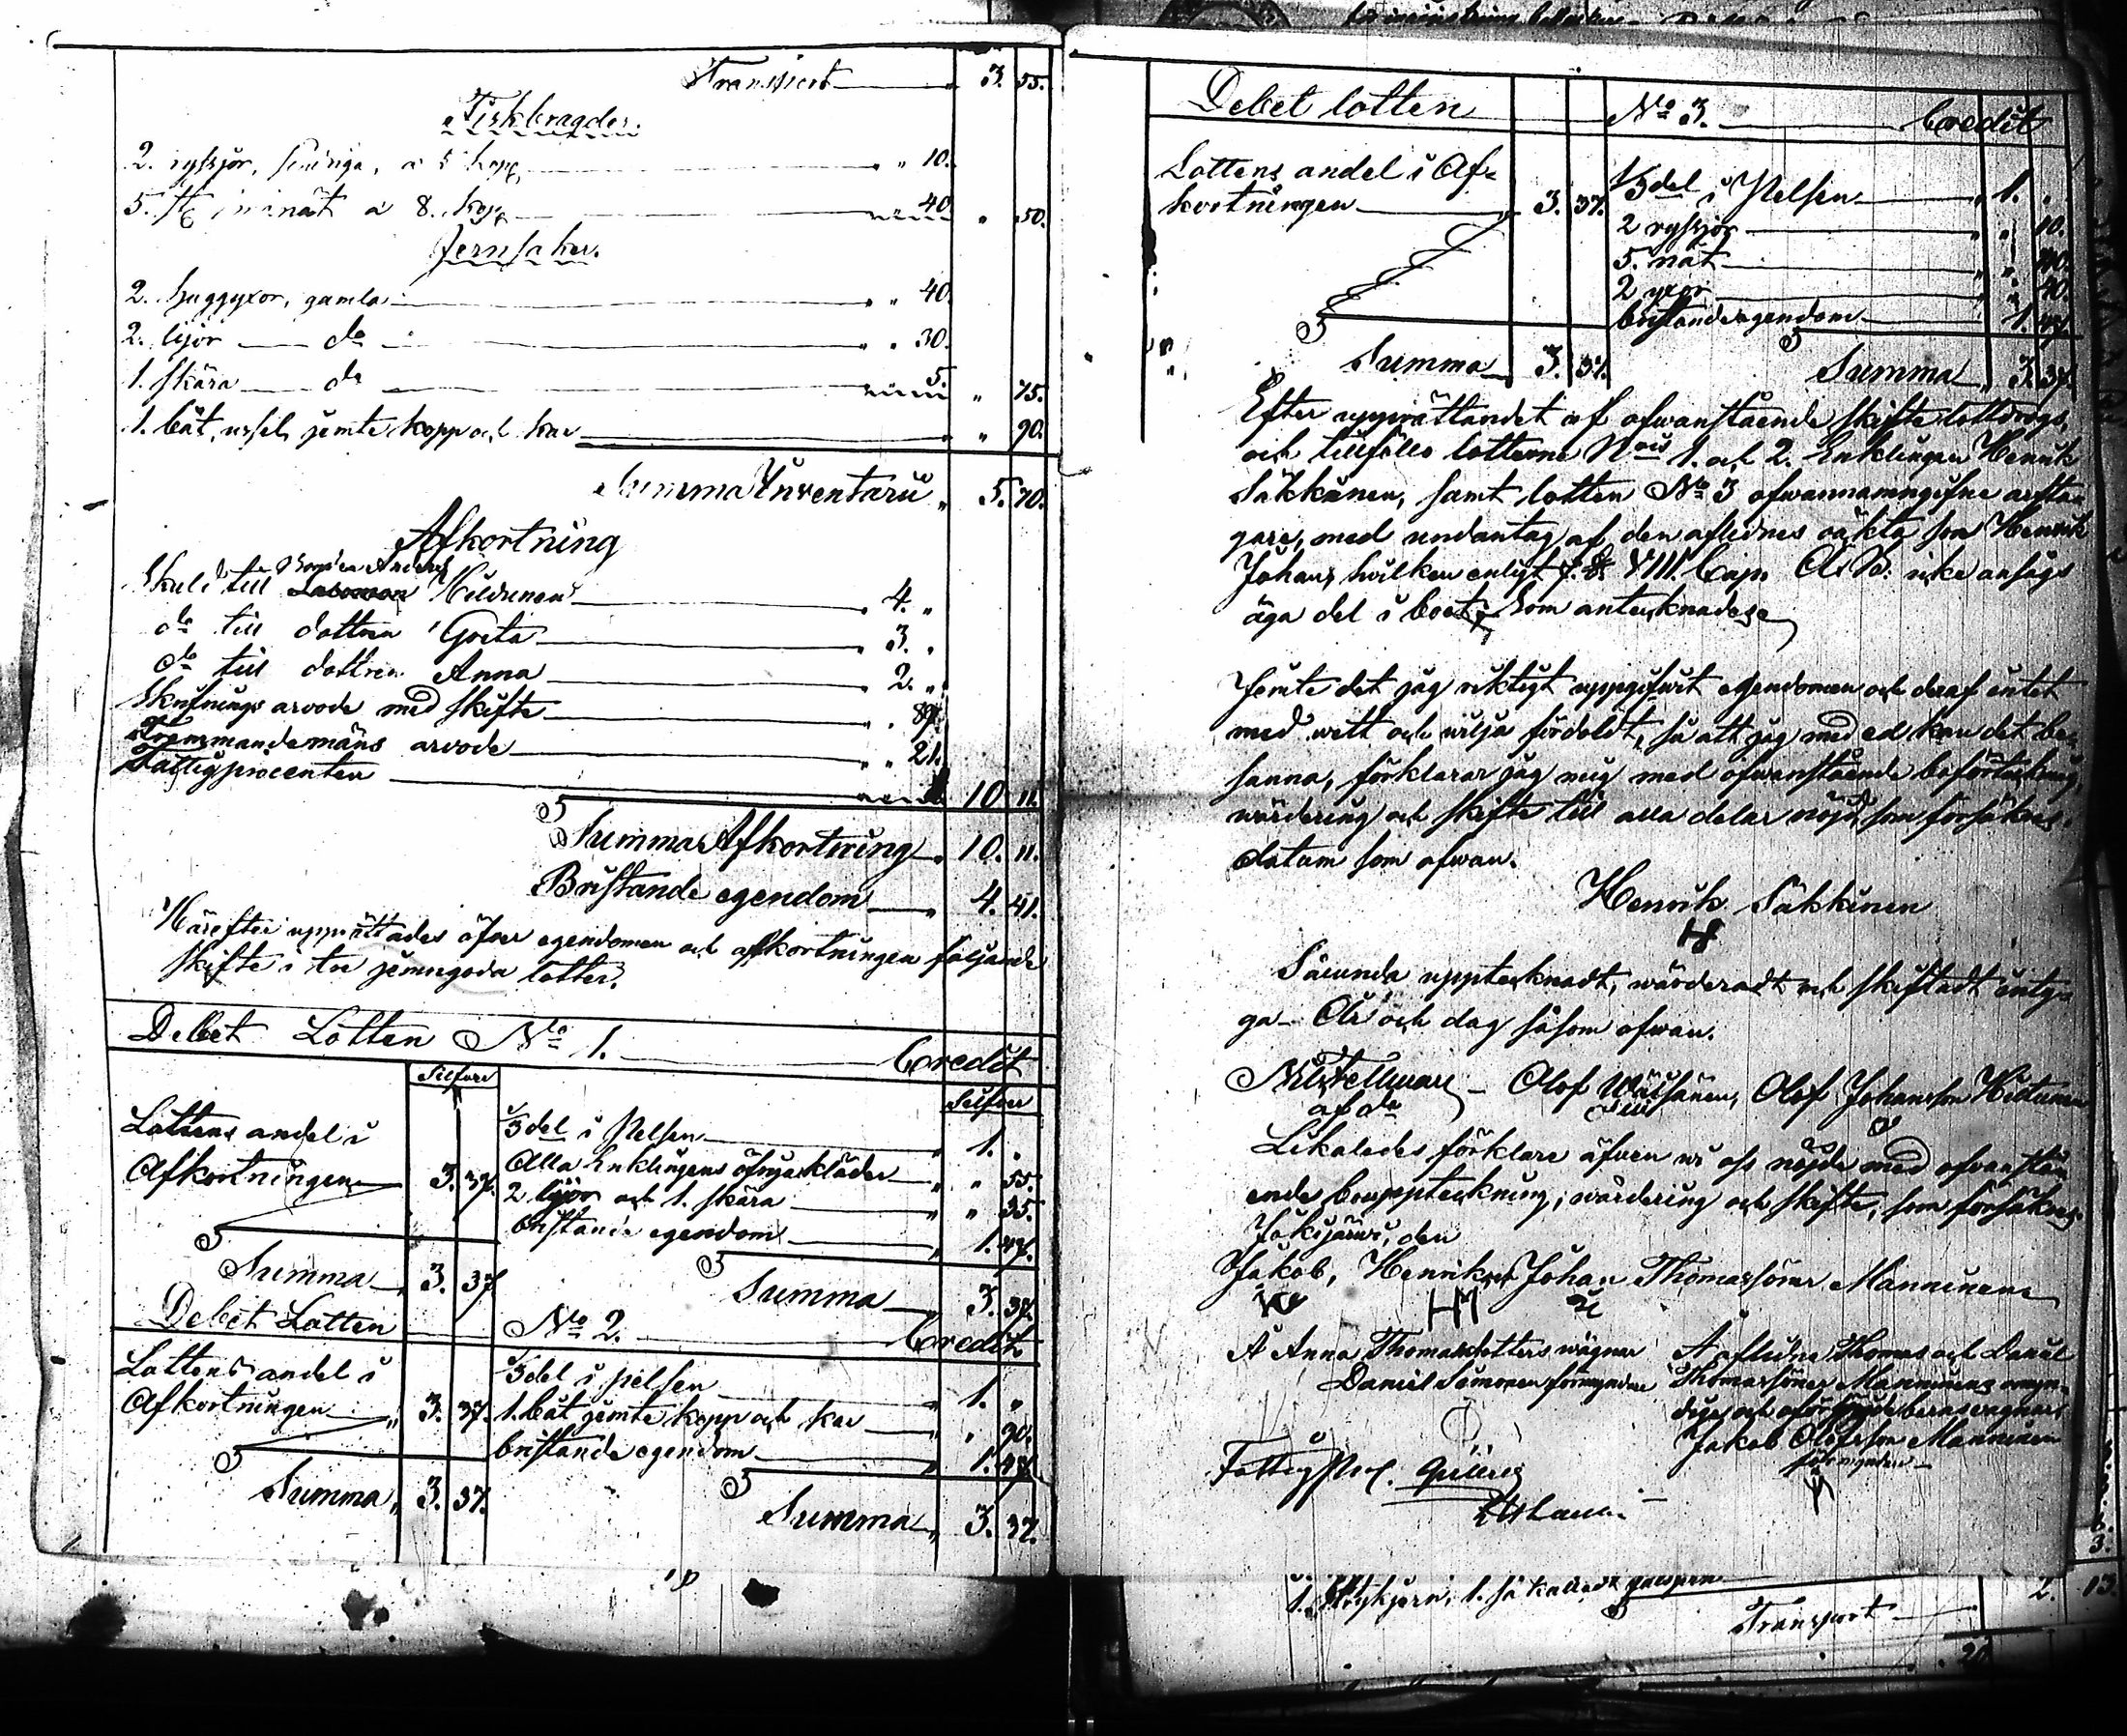 Transport " 3. 55.
Fiskbragder.
2. ryssjor, a 5 kop " " 10.
5. st nät a 8. kop 40 " 50.
Jernsaker.
2. huggyxor, gamla " " 40.
2. lijor do " " 30.
1. skära do 5. " 75.
1. båt, ussel, jemte kopp och kar " " 90.
Summa Inventarii " 5. 70.
Afkortning
Skuld till Bonden Anders Hildunen " 4. "
do till dottren Greta " 3. "
do till dottren Anna " 2. "
Skrifnings arvode med skifte " " 87.
mandemäns arvode " " 21.
Fattigprocenten 10 11.
Summa Afkortning " 10. 11.
Bristande egendom " 4. 41.
Härefter upprättades öfver egendomen och afkortningen följande
skifte i tre jemngoda lotter.
Debet Lotten No 1. Credit
Silfver Silfver
Lottens andel i 1/3 del i Pelsen " 1. "
Afkortningen 3. 37. Alla Enklingens öfriga kläder " " 55.
2 lijor och 1. skära " " 35.
bristande egendom " 1. 47.
Summa 3. 37 Summa " 3. 37.
Debet Lotten No 2. Credit
Lottens andel i 1/3 del i pelsen " 1. "
Afkortningen " 3. 37. 1. båt jemte kopp och kar " " 90.
bristande egendom " 1. 47.
Summa " 3. 37. Summa " 3. 37.
Debet lotten No 3. Credit
Lottens andel i Af= 1/3 del i Pelsen " 1. "
kortningen " 3. 37. 2 ryssjor " " 10.
5. nät " " 40.
2 yxor " " 40.
bristande egendom " 1. 47.
Summa 3. 37. Summa " 3. 37.
Efter upprättandet af ofwanstående skifte lottdrogs,
och tillföllo lotterne Nris 1. och 2. Enklingen Henrik
Säkkinen, samt lotten No 3 ofwannamngifne arfta=
gare, med undantag af den aflidnes oäkta son Henrik
Johan, hvilken enligt VIII. Cap. Ä. B. icke ansågs
äga del i boet; Som antecknades
Jemte det jag riktigt uppgifwit egendomen och deraf intet
med wett och wilja fördoldt, så att jag med ed kan det be=
sanna, förklarar jag mig med ofwanstående boförteckning,
wärdering och skifte till alla delar nöjd, som försäkras.
datum som ofwan.
Henrik Säkkinen
Sålunda upptecknadt, wärderadt och skiftadt inty=
ga. År och dag såsom ofwan.
Nils Fellman Olof Wäisänen, Olof Johansson Hiltunen
Likaledes förklara äfven wi oss nöjde med ofvanstå=
ende bouppteckning, wärdering och skifte, som försäkras.
den
Jakob, Henrik och Johan Thomassöner Manninen
HM
Å Anna Thomasdotters wägnar Å aflidne Thomas och Daniel
Daniel Simonen förmyndare Thomassöner Manninens omyn=
diga och barns vägnar
Jakob Olofsson Manninen
förmyndare
1. 1. så kallad
Transport 2. 13.